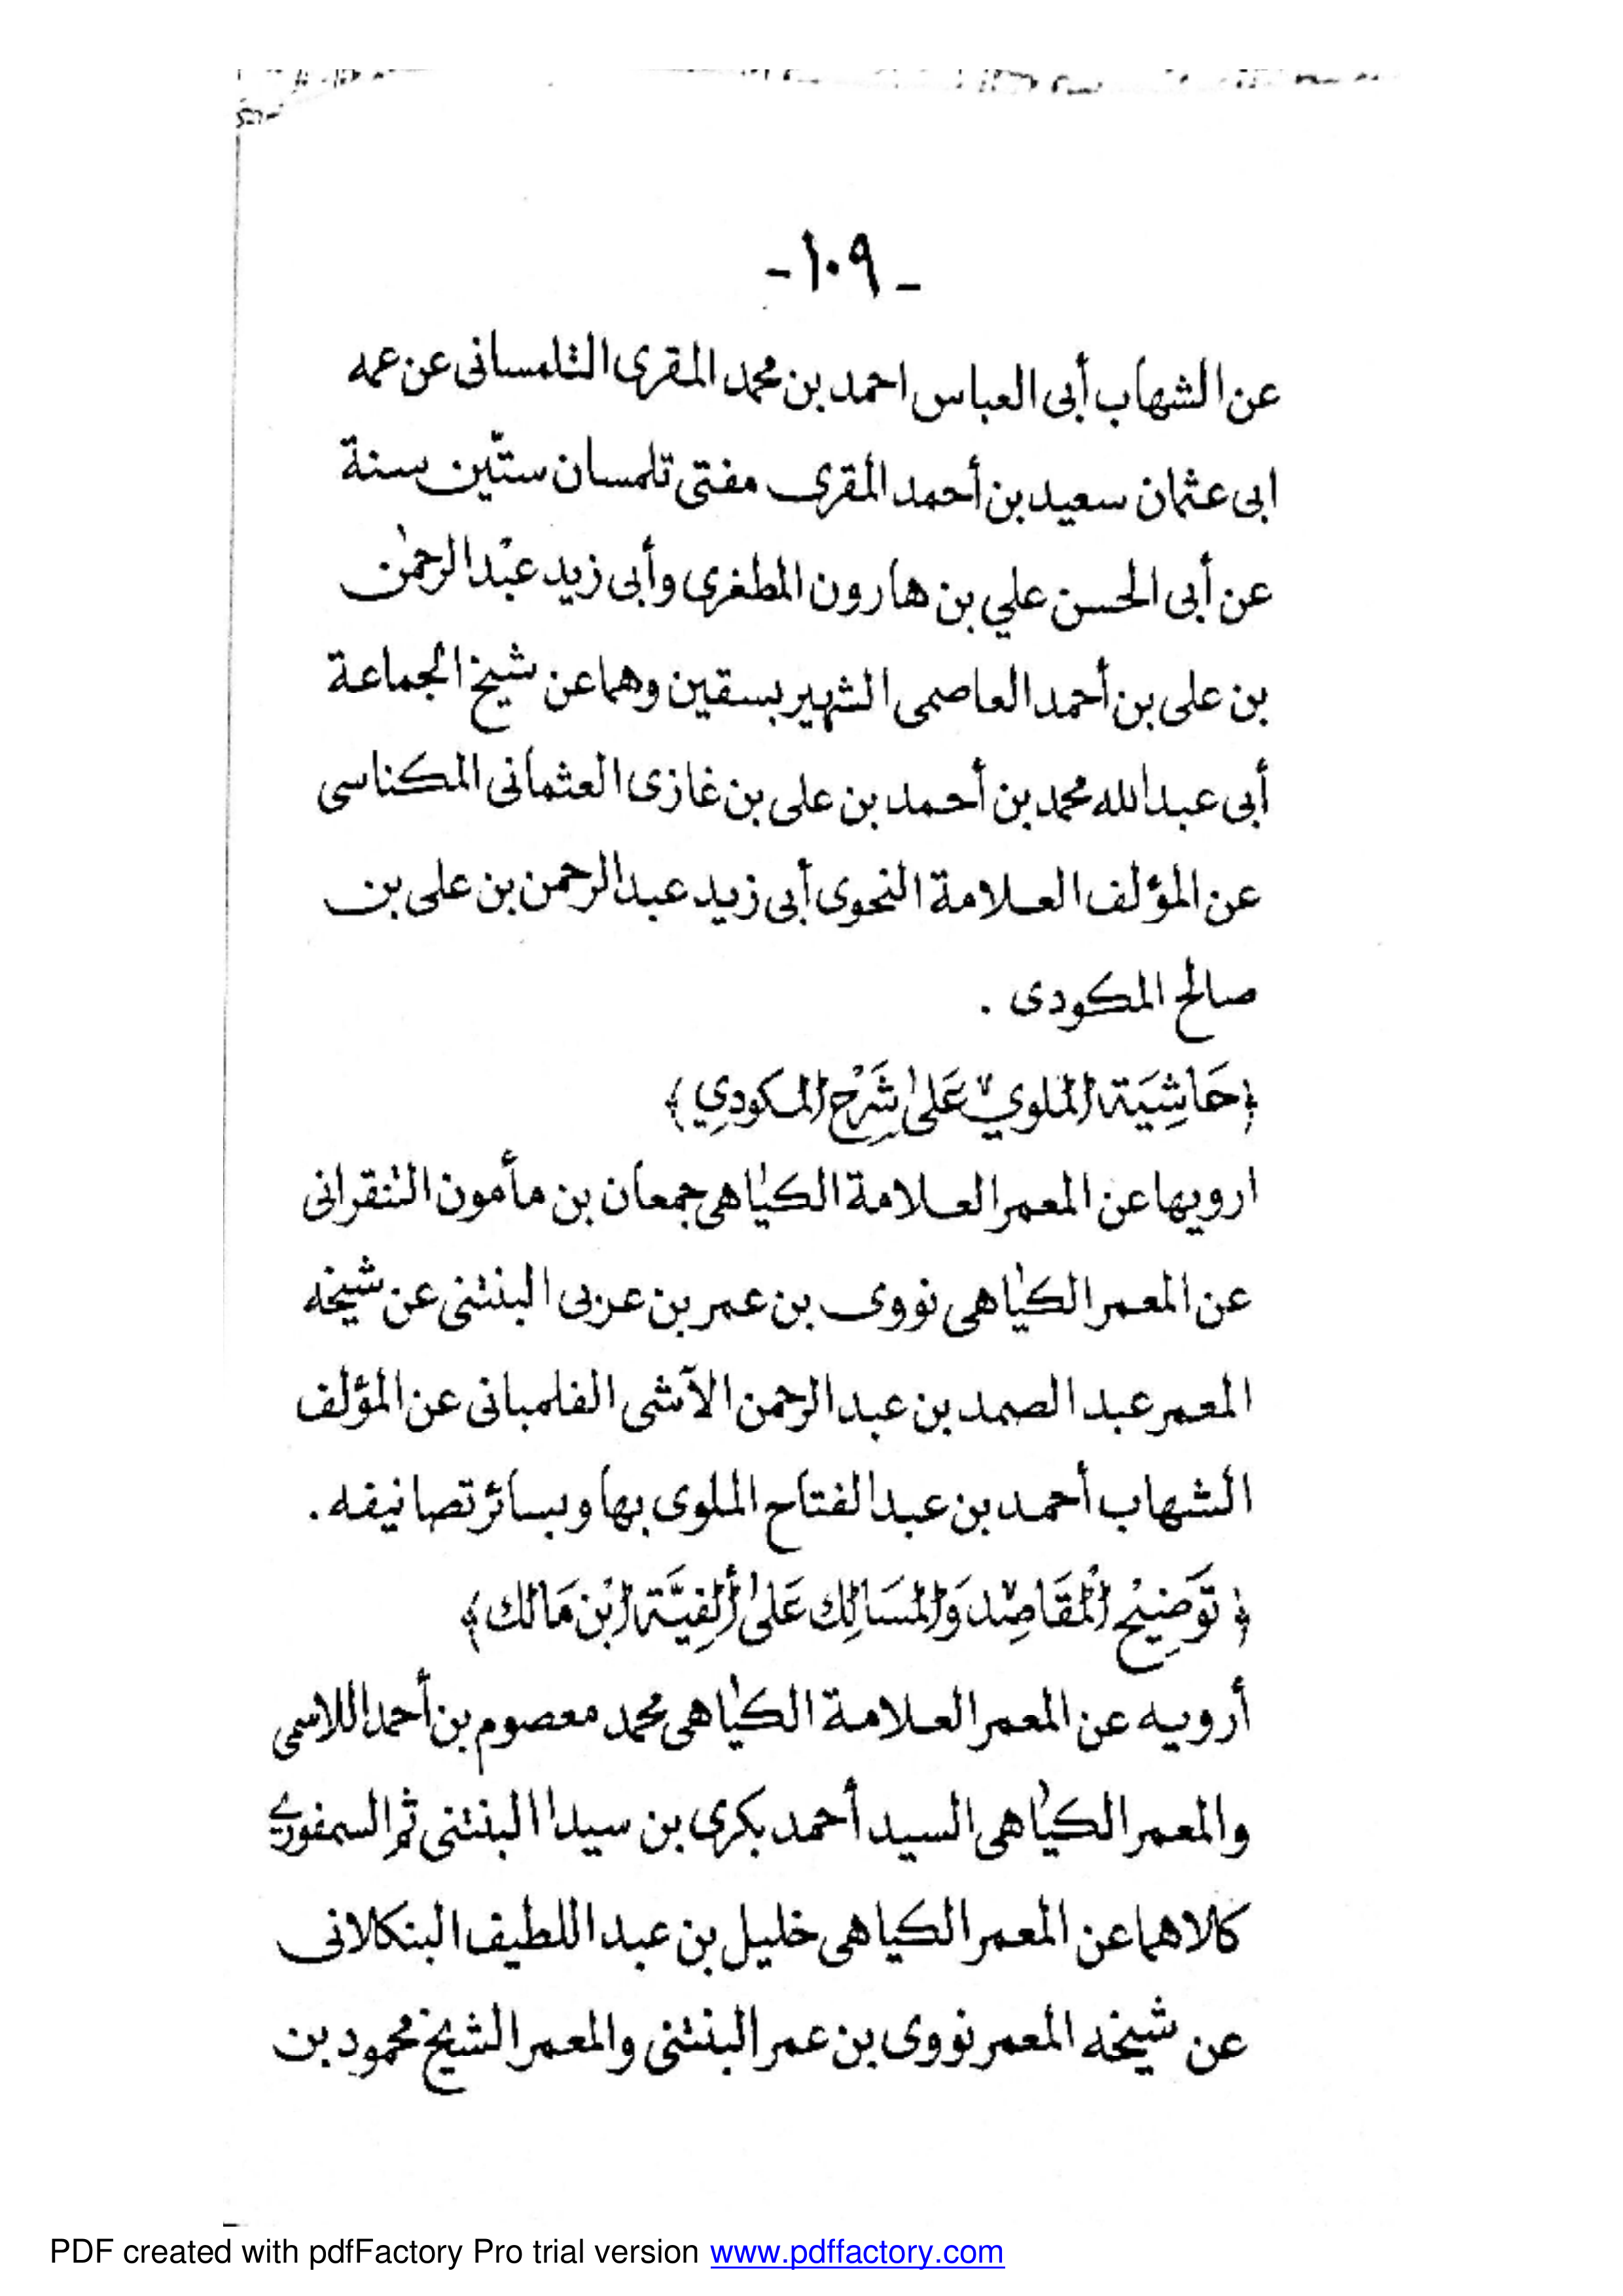 - ١٠٩ -
عن الشهاب أبى العباس احمد بن محمد المقرى التلمسانى عن عمه
ابى عثمان سعيد بن أحمد المقرى مفتى تلمسان ستّين سنة
عن أبى الحسن علي بن هارون المطغرى وأبى زيد عبْد الرحمٰن
بن على بن أحمد العاصمى الشهير بسقين وهما عن شيخ الجماعة
أبى عبد الله محمد بن أحمد بن على بن غازى العثمانى المكناسى
عن المؤلف العلامة النحوى أبى زيد عبد الرحمن بن على بن
صالح المكودى .
﴿حَاشِيَة الملوي عَلىٰ شَرْح المكودِي﴾
ارويها عن المعمر العلامة الكياهى جمعان بن مأمون التنقرانى
عن المعمر الكياهى نووى بن عمر بن عربى البنتنى عن شيخه
المعمر عبد الصمد بن عبد الرحمن الآشى الفلمبانى عن المؤلف
الشهاب أحمد بن عبد الفتاح الملوى بها وبسائر تصانيفه .
﴿تَوضِيْح الْمقَاصِد وَالمسَالِك عَلىٰ ألفِيَّة ابْن مَالك﴾
أرويه عن المعمر العلامة الكياهى محمد معصوم بن أحمد اللاسمى
والمعمر الكياهى السيد أحمد بكرى بن سيدا البنتنى ثم السمفوري
كلاهما عن المعمر الكياهى خليل بن عبد اللطيف البنكلانى
عن شيخه المعمر نووى بن عمر البنتنى والمعمر الشيخ محمود بن
PDF created with pdfFactory Pro trial version www.pdffactory.com